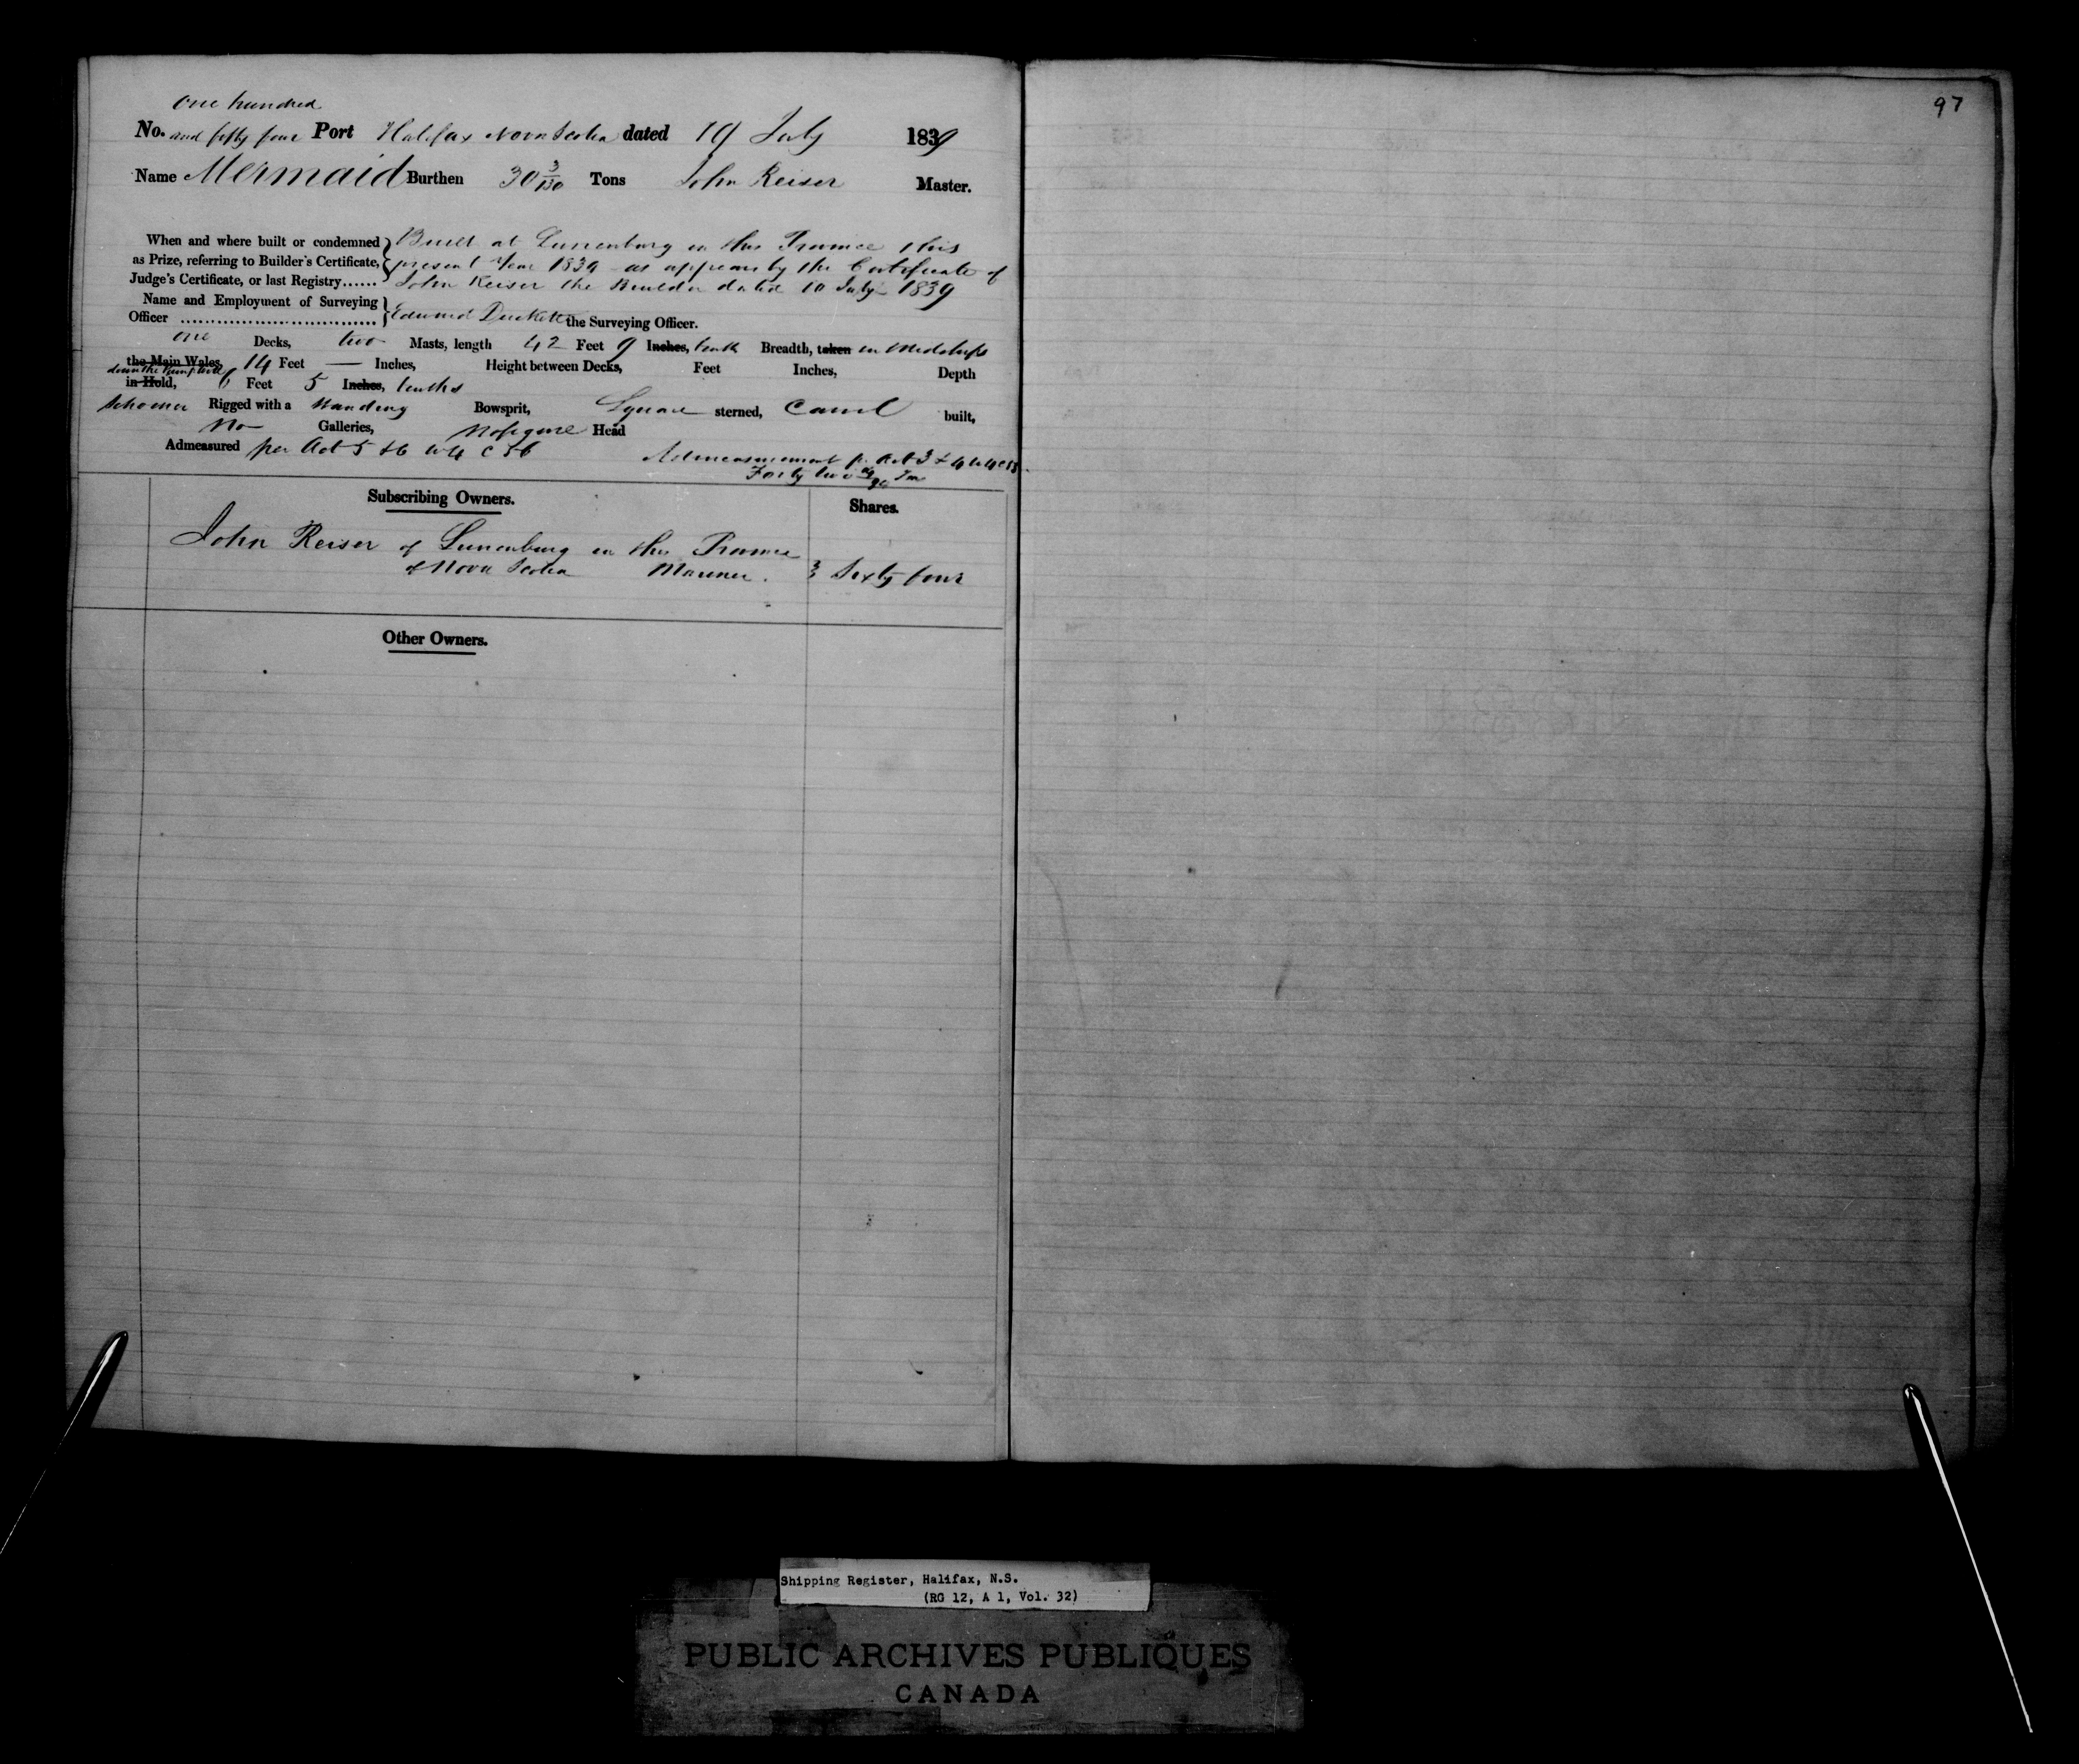 one hundred
No. and fifty four Port Halifax Nova Scotia dated 19 July 1839
Name Mermaid Burthen 30 3/130 Tons John Reiser Master.
When and where built or condemned as Prize, referring to Builder's Certificate, Judge's Certificate, or last Registry......
Built at Lunenburg in this Province this
present Year 1839 as appears by the Certificate of
John Reiser the Builder dated 10 July 1839
Name and Employment of Surveying Officer ................................ Edward Duckett the Surveying Officer.
one Decks, two Masts, length 42 Feet 9 Inches, tenth Breadth, taken in Midships
the Main Wales, 14 Feet — Inches, Height between Decks, Feet Inches, Depth
in Hold, 6 Feet 5 Inches, tenths
Schooner Rigged with a standing Bowsprit, Square sterned, Carvel built,
No Galleries, No figure Head
Admeasured per Act 5 & 6 W 4 C 56
Admeasurement pr Act 3 & 4 W 4 C 55
Forty two
Subscribing Owners. Shares.
John Reiser of Lunenburg in this Province
of Nova Scotia Mariner. Sixty four
Other Owners.
97
Shipping Register, Halifax, N.S.
(RG 12, A 1, Vol. 32)
PUBLIC ARCHIVES PUBLIQUES
CANADA